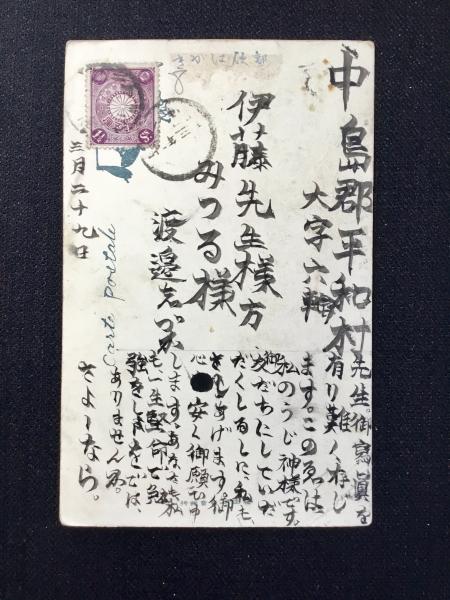 中島郡平和村
大字六輪
伊藤先生様方
みつる様
渡邉
三月二十九日
Carte Postale
先生。御寫真を
有り難く存じ
ます。このゑは、
私のうじ神様です。
友だちにしていた
だくしるしに、私も、
さしあげます。御
安く御願ひ申
します、あなたも私
も一生堅命で勉
強をしようではゞ
ありませんか。
さよーなら。